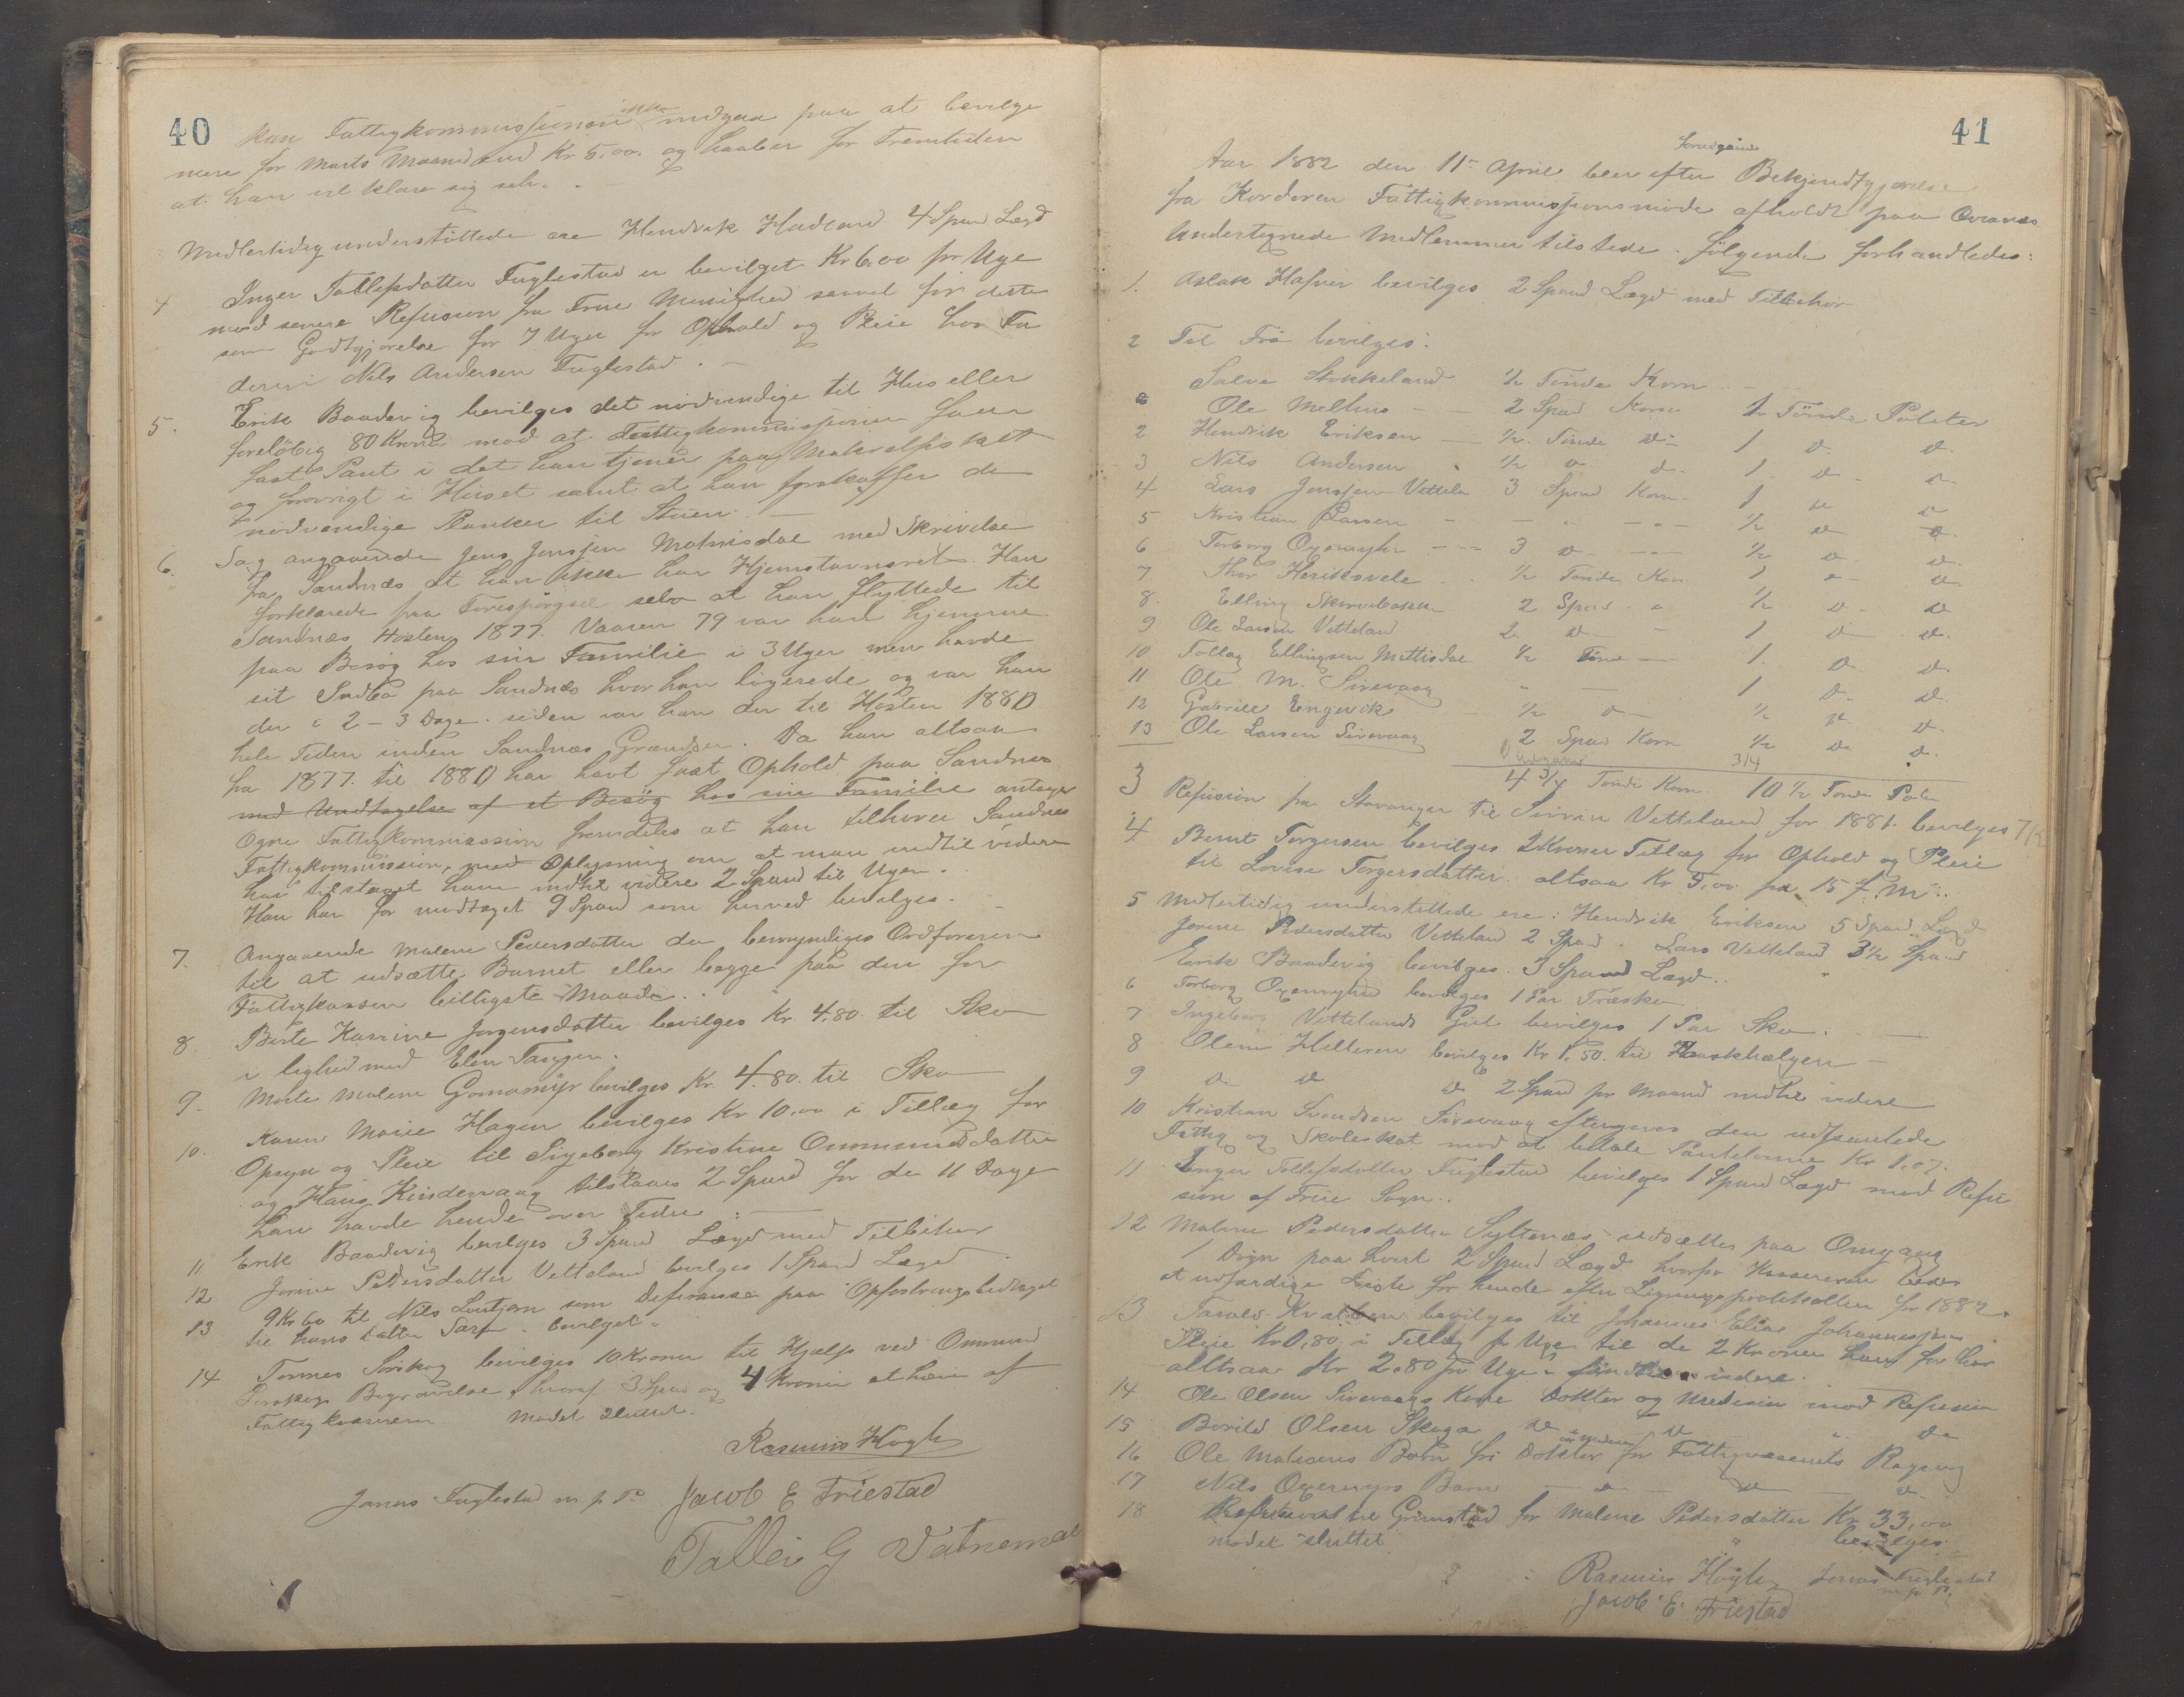 40
kan Fattigkommissionen ikke indgaa paa at bevilge
mere for Marts Maaned end Kr 5.00. og haaber for Fremtiden
at han vil klare sig selv.
Midlertidig understøttede ere Hendrik Hadland 4 Spand Lægd
4 Inger Tollefsdatter Fuglestad er bevilget Kr 6.00 pr Uge
mod senere Refusion fra Friie Menighed saavel for dette
som Godtgjørelse for 7 Uger for Ophold og Pleie hos Fa
deren Nils Andersen Fuglestad.
5. Erik Baadevig bevilges det nødvendige til Hus eller
foreløbig 80 Kroner mod at Fattigkommissionen faar
fast Pant i det han tjener paa Makrelfisket
og forøvrigt i Huset samt at han forskaffer de
nødvendige Planker til Stuen.
6. Sag angaaende Jens Jensen Matnisdal med Skrivelse
fra Sandnæs at han ikke har Hjemstavnsret. Han
forklarede paa Forespørgsel selv at han flyttede til
Sandnæs Høsten 1877. Vaaren 79 var han hjemme
paa Besøg hos sin Familie i 3 Uger men havde
sit Indbo paa Sandnæs hvor han logerede og var han
der i 2 - 3 Dage. siden var han der til Høsten 1880
hele Tiden inden Sandnæs Grændser. Da han altsaa
fra 1877. til 1880 har havt fast Ophold paa Sandnæs
med Undtagelse af et Besøg hos sin Familie antager
Ogne Fattigkommission fremdeles at han tilhører Sandnes
Fattigkommission, med Oplysning om at man indtil videre
har tilstaaet ham indtil videre 2 Spand til Ugen.
Han har før modtaget 9 Spand som herved bevilges.
7. Angaaende Malene Pedersdatter da bemyndiges Ordføreren
til at udsætte Barnet eller begge paa den for
Fattigkassen billigste Maade.
8 Berte Karrine Jørgensdatter bevilges Kr. 4.80 til Sko
i lighed med Elen Tangen.
9. Marte Malene Gomamyr bevilges Kr. 4.80. til Sko
10. Karen Marie Hagen bevilges Kr 10.00 i Tillæg for
Opsyn og Pleie til Ingeborg Kristine Ommundsdatter
og Hans Kindervaag tilstaaes 2 Spand for de 11 Dage
han havde hende over Tiden.
11 Erik Baadevig bevilges 3 Spand Lægd med Tilbehør
12 Jorine Pedersdatter Vetteland bevilges 1 Spand Lægd
13 9 Kr 60 til Nils Lintjørn som Deferanse paa Opfostringsbidraget
til hans Datter Sara. bevilget.
14 Tønnes Sirskog bevilges 10 Kroner til Hjælp ved Ommund
Sirskogs Begravelse, hvoraf 3 Spand og 4 Kroner at hæve af
Fattigkassereren Mødet sluttet.
Rasmus Høgh
Jonas Fuglestad m. p. P. Jacob E Friestad
Tollei G Vatnemoe
41
Aar 1882 den 11te April blev efter foregående Bekjendtgjørelse
fra Ordføreren Fattigkommissionsmøde afholdt paa Ovranæs
Undertegnede Medlemmer tilstede. følgende forhandledes:
1. Aslak Hafnes bevilges 2 Spand Lægd med Tilbehør
2 Til Frø bevilges:
Salve Stokkeland ½ Tønde Korn
Ole Melhus 2 Spad Korn 1 Tønde Poteter
2 Hendrik Eriksen ½ Tønde d 1 d. d.
3 Nils Andersen ½ d d. 1 d d
4 Lars Jonssen Vetteland 3 Spand Korn 1 d d
5 Kristian Larsen - - ½ d d
6 Torborg Oxemyhr 3 d ½ d d.
7 Thor Heriksvele ½ Tønde Korn 1 d d
8. Elling Skurvebakken 2 Spand ½ d d
9 Ole Larsen Vetteland 2 d 1 d d.
10 Tollag Ellingsen Mattisdal ½ Tønde 1. d d.
11 Ole M. Sirevaag " 1 d d.
12 Gabriel Engervik ½ d ½ d. d.
13 Ole Larsen Sirevaag 2 Spand Korn ½ d d.
3/4
4 3/4 Tønde Korn 10 ½ Tønde Poter
3 Refusion fra Stavanger til Siren Vetteland for 1881. bevilges
4 Bernt Torgersen bevilges 2 Kroner Tillæg for Ophold og Pleie
til Lovise Torgersdatter. altsaa Kr 5,00 fra 15 f. M.
5 Midlertidig understøttede ere: Hendrik Eriksen 5 Spand Lægd
Jorine Pedersdatter Vetteland 2 Spand. Lars Vetteland 3½ Spand
Erik Baadevig bevilges 3 Spand Lægd.
6 Torborg Oxemyhr bevilges 1 Par Træsko.
7 Ingeborg Vettelands Pige bevilges 1 Par Sko.
8 Olene Helleren bevilges Kr 1,50. til Huskhælgen
9 d d d 2 Spand pr Maaned indtil videre
10 Kristian Svendsen Sirevaag eftergives den udpantede
Fattig og Skoleskat mod at betale Pantelønnen Kr 1,07.
11 Inger Tollefsdatter Fuglestad bevilges 1 Spand Lægd mod Refu
sion af Friie Sogn.
12 Malene Pedersdatter Syltenæs udsættes paa Omgang
1 Døgn paa hvert 2 Spand Lægd hvorfor Kassereren bedes
at udfærdige Liste for hende efter Ligningsprotokollen for 1882.
13 Tarald Kvalben bevilges til Johannes Elias Johannessens
Pleie Kr 0,80. i Tillæg pr Uge til de 2 Kroner han før har
alltsaa Kr 2.80 pr Uge indtil videre.
14 Ole Olsen Sirevaags Kone Doktor og Medisin mod Refusion
15 Borild Olsen Skoga d d d
16 Ole Matisens Børn fri Doktor og Medisin for Fattigvæsenets Regning
17 Nils Oxemyrs Barn d d d
18 Refusion til Grimstad for Malene Pedersdatter Kr. 33,00
mødet sluttet bevilges.
Rasmus Høgh Jonas Fuglestad
Jacob E. Friestad m. p. P.